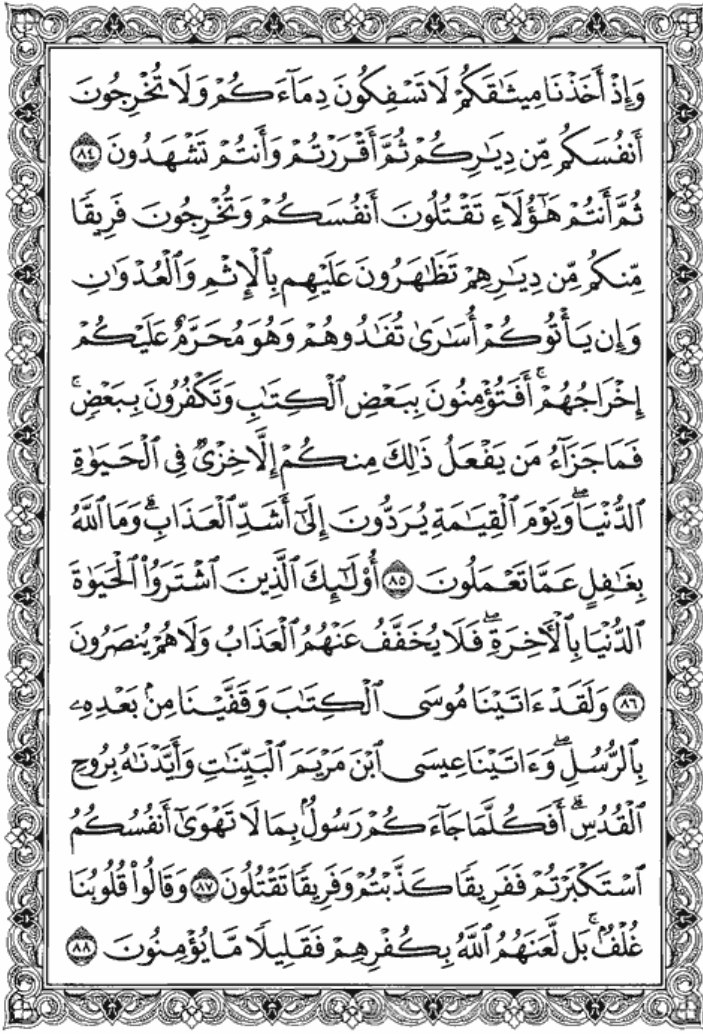 وَإِذْ أَخَذْنَا مِيثَٰقَكُمْ لَا تَسْفِكُونَ دِمَآءَكُمْ وَلَا تُخْرِجُونَ
أَنفُسَكُم مِّن دِيَٰرِكُمْ ثُمَّ أَقْرَرْتُمْ وَأَنتُمْ تَشْهَدُونَ ٨٤
ثُمَّ أَنتُمْ هَٰٓؤُلَآءِ تَقْتُلُونَ أَنفُسَكُمْ وَتُخْرِجُونَ فَرِيقًا
مِّنكُم مِّن دِيَٰرِهِمْ تَظَٰهَرُونَ عَلَيْهِم بِٱلْإِثْمِ وَٱلْعُدْوَٰنِ
وَإِن يَأْتُوكُمْ أُسَٰرَىٰ تُفَٰدُوهُمْ وَهُوَ مُحَرَّمٌ عَلَيْكُمْ
إِخْرَاجُهُمْ ۚ أَفَتُؤْمِنُونَ بِبَعْضِ ٱلْكِتَٰبِ وَتَكْفُرُونَ بِبَعْضٍ ۚ
فَمَا جَزَآءُ مَن يَفْعَلُ ذَٰلِكَ مِنكُمْ إِلَّا خِزْىٌ فِى ٱلْحَيَوٰةِ
ٱلدُّنْيَا ۖ وَيَوْمَ ٱلْقِيَٰمَةِ يُرَدُّونَ إِلَىٰٓ أَشَدِّ ٱلْعَذَابِ ۗ وَمَا ٱللَّهُ
بِغَٰفِلٍ عَمَّا تَعْمَلُونَ ٨٥ أُو۟لَٰٓئِكَ ٱلَّذِينَ ٱشْتَرَوُا۟ ٱلْحَيَوٰةَ
ٱلدُّنْيَا بِٱلْءَاخِرَةِ ۖ فَلَا يُخَفَّفُ عَنْهُمُ ٱلْعَذَابُ وَلَا هُمْ يُنصَرُونَ
٨٦ وَلَقَدْ ءَاتَيْنَا مُوسَى ٱلْكِتَٰبَ وَقَفَّيْنَا مِنۢ بَعْدِهِۦ
بِٱلرُّسُلِ ۖ وَءَاتَيْنَا عِيسَى ٱبْنَ مَرْيَمَ ٱلْبَيِّنَٰتِ وَأَيَّدْنَٰهُ بِرُوحِ
ٱلْقُدُسِ ۗ أَفَكُلَّمَا جَآءَكُمْ رَسُولٌۢ بِمَا لَا تَهْوَىٰٓ أَنفُسُكُمُ
ٱسْتَكْبَرْتُمْ فَفَرِيقًا كَذَّبْتُمْ وَفَرِيقًا تَقْتُلُونَ ٨٧ وَقَالُوا۟ قُلُوبُنَا
غُلْفٌۢ ۚ بَل لَّعَنَهُمُ ٱللَّهُ بِكُفْرِهِمْ فَقَلِيلًا مَّا يُؤْمِنُونَ ٨٨